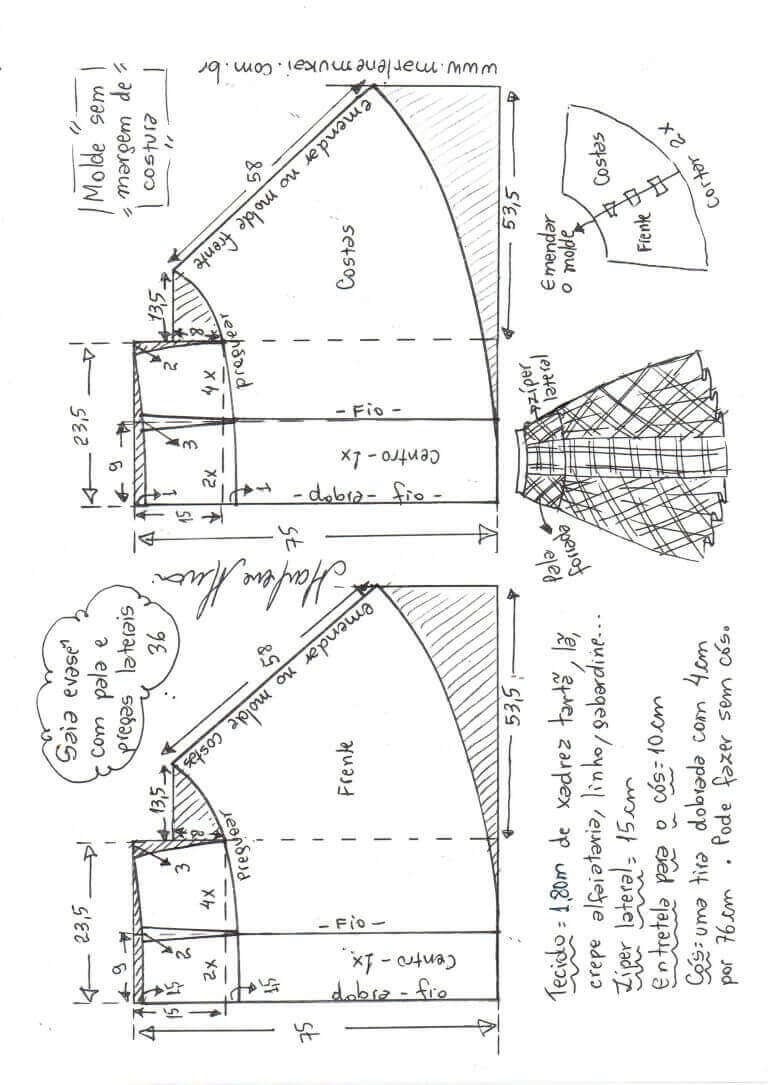 Saia evasê
com pala e
pregas laterais
36
"Molde sem"
"margem de"
costura
www.marlenemukai.com.br
23,5
9
13,5
58
emendar no molde costas
15
1,5
2
3
8
2x
4x
1,5
Preguear
75
dobra - fio
Centro - 1x
- Fio -
Frente
53,5
23,5
9
13,5
58
emendar no molde frente
15
1
3
2
8
2x
4x
1
preguear
75
- dobra - fio -
Centro - 1x
- Fio -
Costas
53,5
Tecido = 1,80m de xadrez tartã, lã,
crepe alfaiataria, linho, gabardine...
Zíper lateral = 15cm
Entretela para o cós = 10cm
Cós = uma tira dobrada com 4cm
por 76cm. Pode fazer sem cós.
pala
forrada
zíper
lateral
Emendar
o molde
Frente
Costas
Cortar 2x